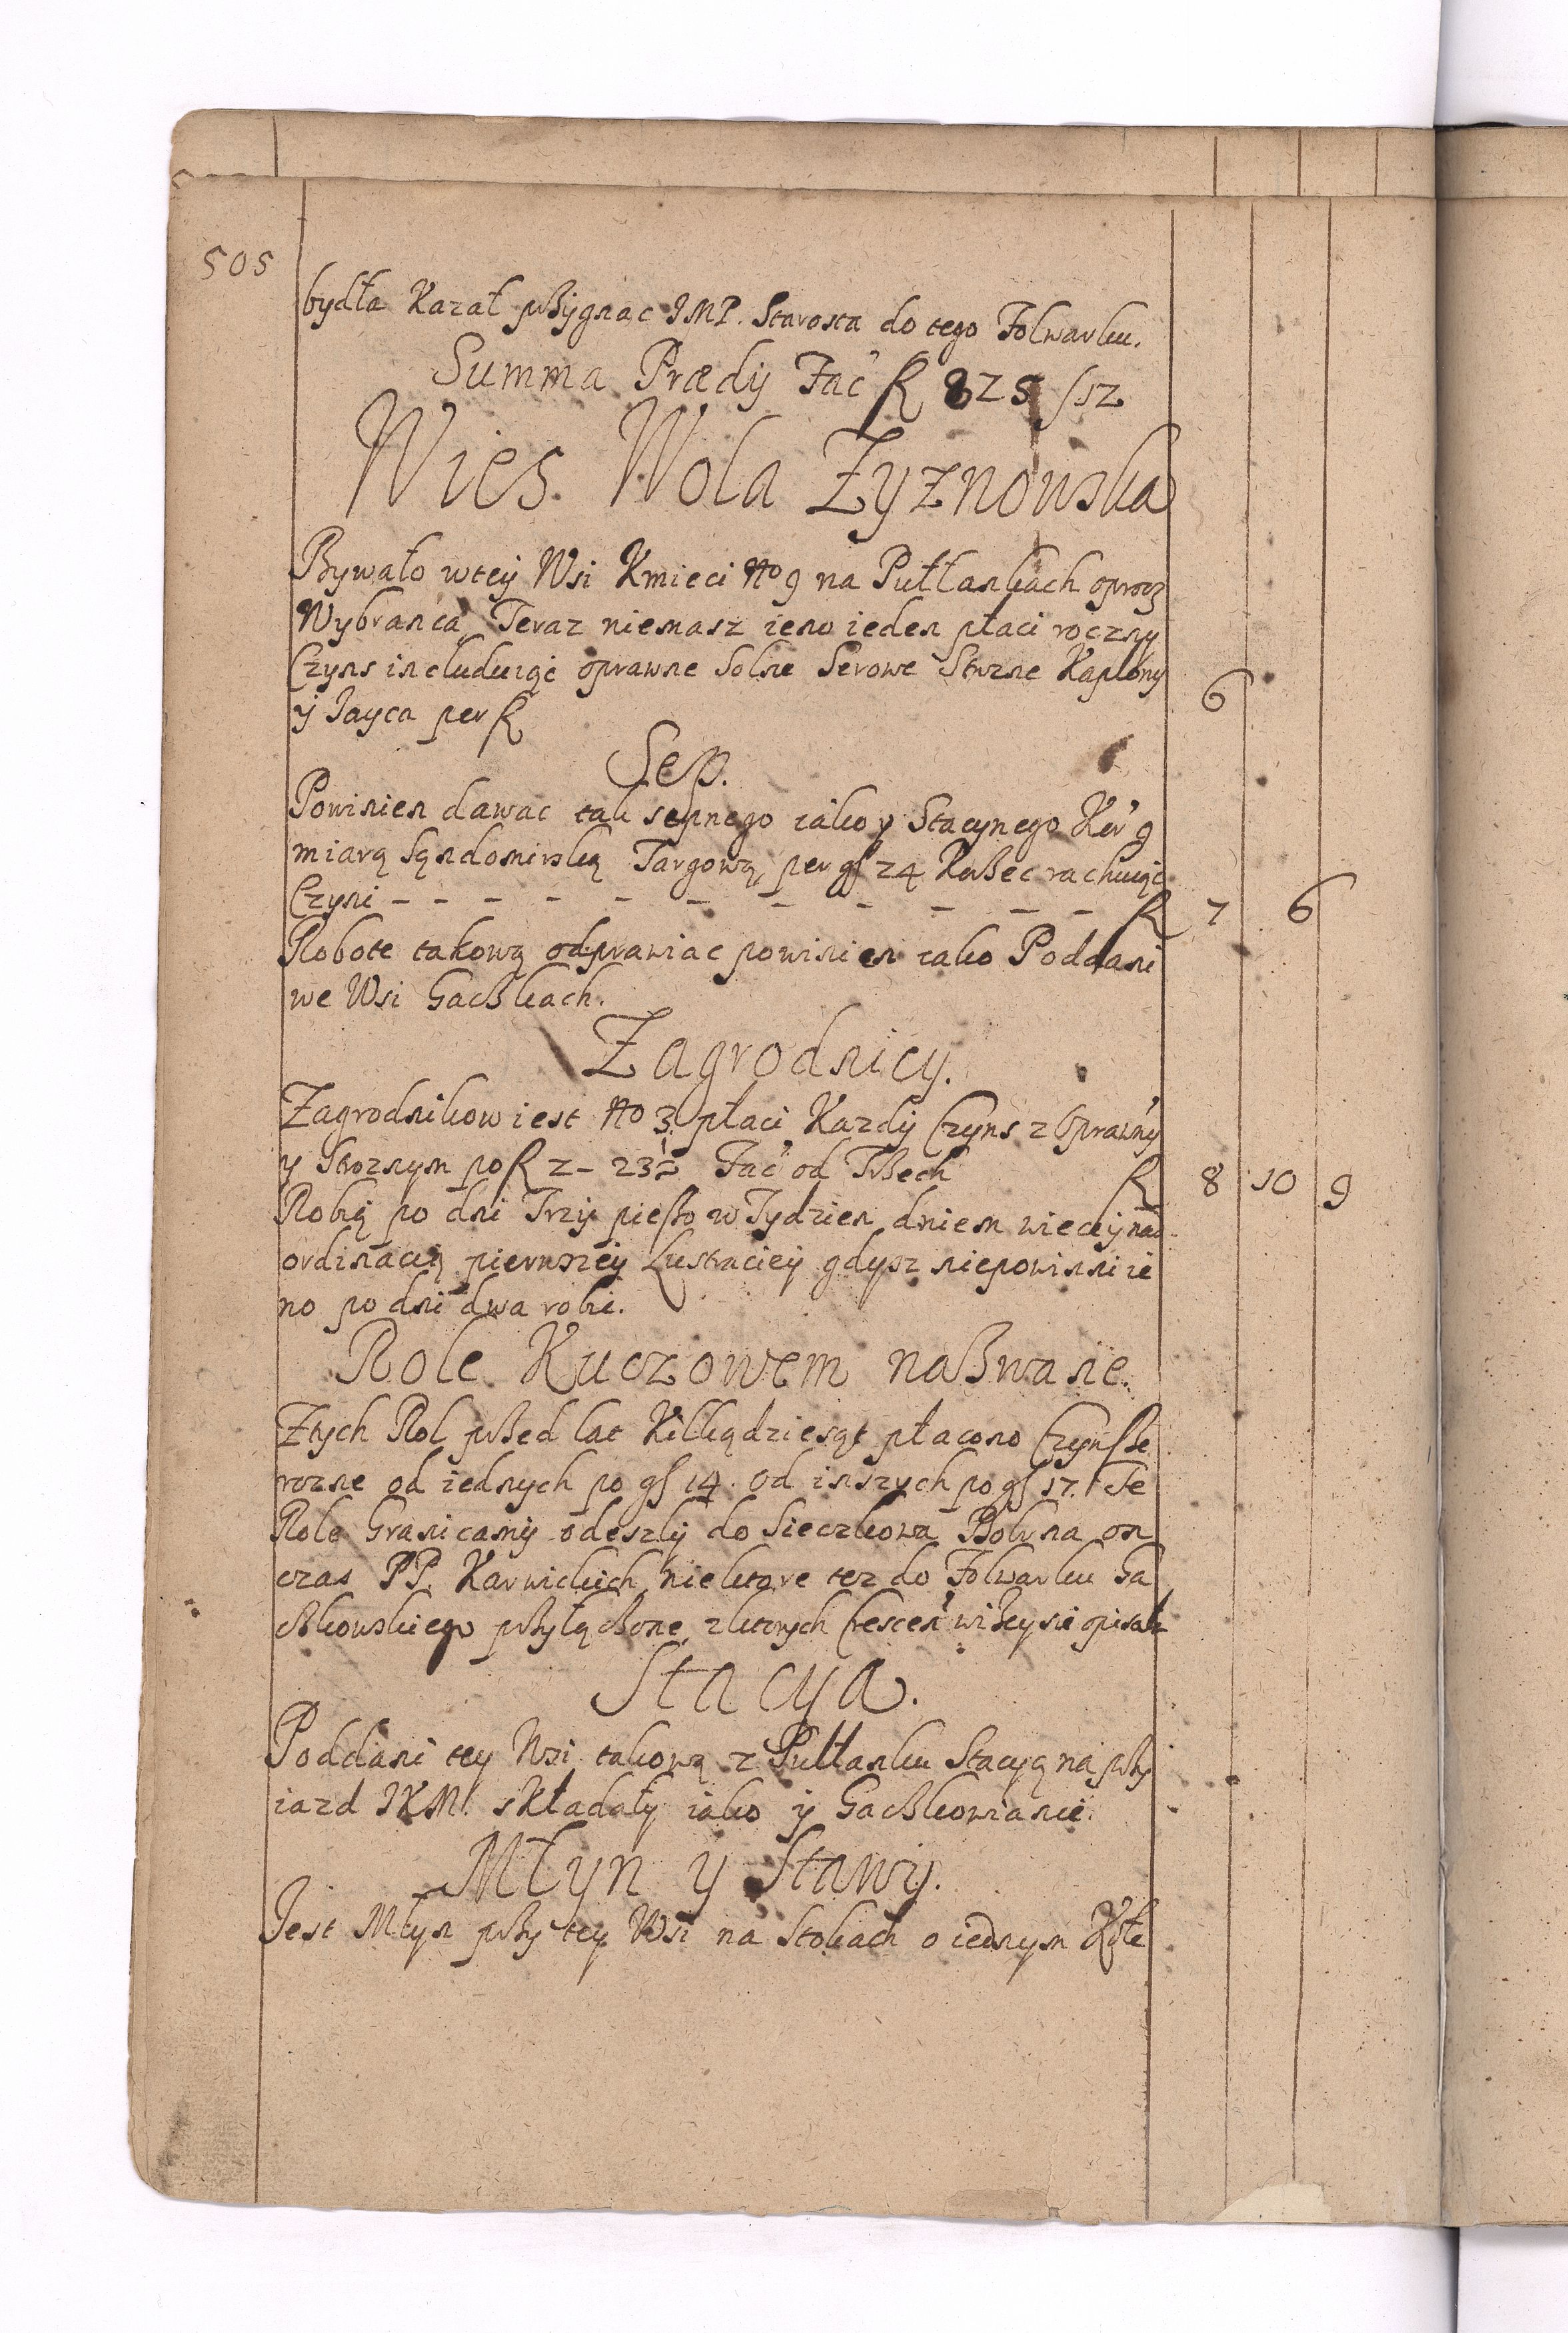 505
bydła Kazał pßygnac JMP. Starosta do tego Folwarku.
Summa Prædij Fac̉ f 825 /12
Wies. Wola Zyznowska
Bywało wtey Wsi Kmieci No 9 na Pułłankach oprocz
Wybranca Teraz niemasz ieno ieden płaci roczny
Czyns includuiąc oprawne Solne Serowe Strzne Kapłony
ÿ Jayca per f 6
Sep.
Powinien dawac tak sepnego iako y Stacynego Kor̉ 9
miarą Sąndomirską Targową, per gß 24 Korzec rachuiąc
Czyni – – – – – – – – – – – f 7 6
Robote takową odprawiac powinien iako Poddani
we Wsi Gaćßkach.
Zagrodnicy.
Zagrodnikow iest No 3 płaci Kazdÿ Czyns z Oprawny̓
y Stroznym po f 2 – 23½ Fac̉ od Trßech f 8 10 9
Robią po dni Trzÿ pießo w Tydzien dniem wiecey nad
ordinacią pierwszeÿ Lustracieÿ gdysz niepowinni ie
no po dni dwa robic.
Role Kuczowem naßwane.
Ztych Rol pßed lat Kilkądziesąt płacono Czynße
rozne od iednych po gß 14. od inszych po gß 17. Te
Role Granicamÿ odeszlÿ do Sieczkowa na on
czas PP. Karwickich, niektore tez do Folwarku Ga
ckowskiego pßyłąćßone, z ktorych Crescen̉ wißey sie opisała
Stacya.
Poddani tey Wsi takową z Pułłanku Stacyą na pßy
iazd JKM. składały iako ÿ Gaćßkowianie.
Młyn y Stawy.
Jest Młyn pßy tey Wsi na Stokach o iednym Kole